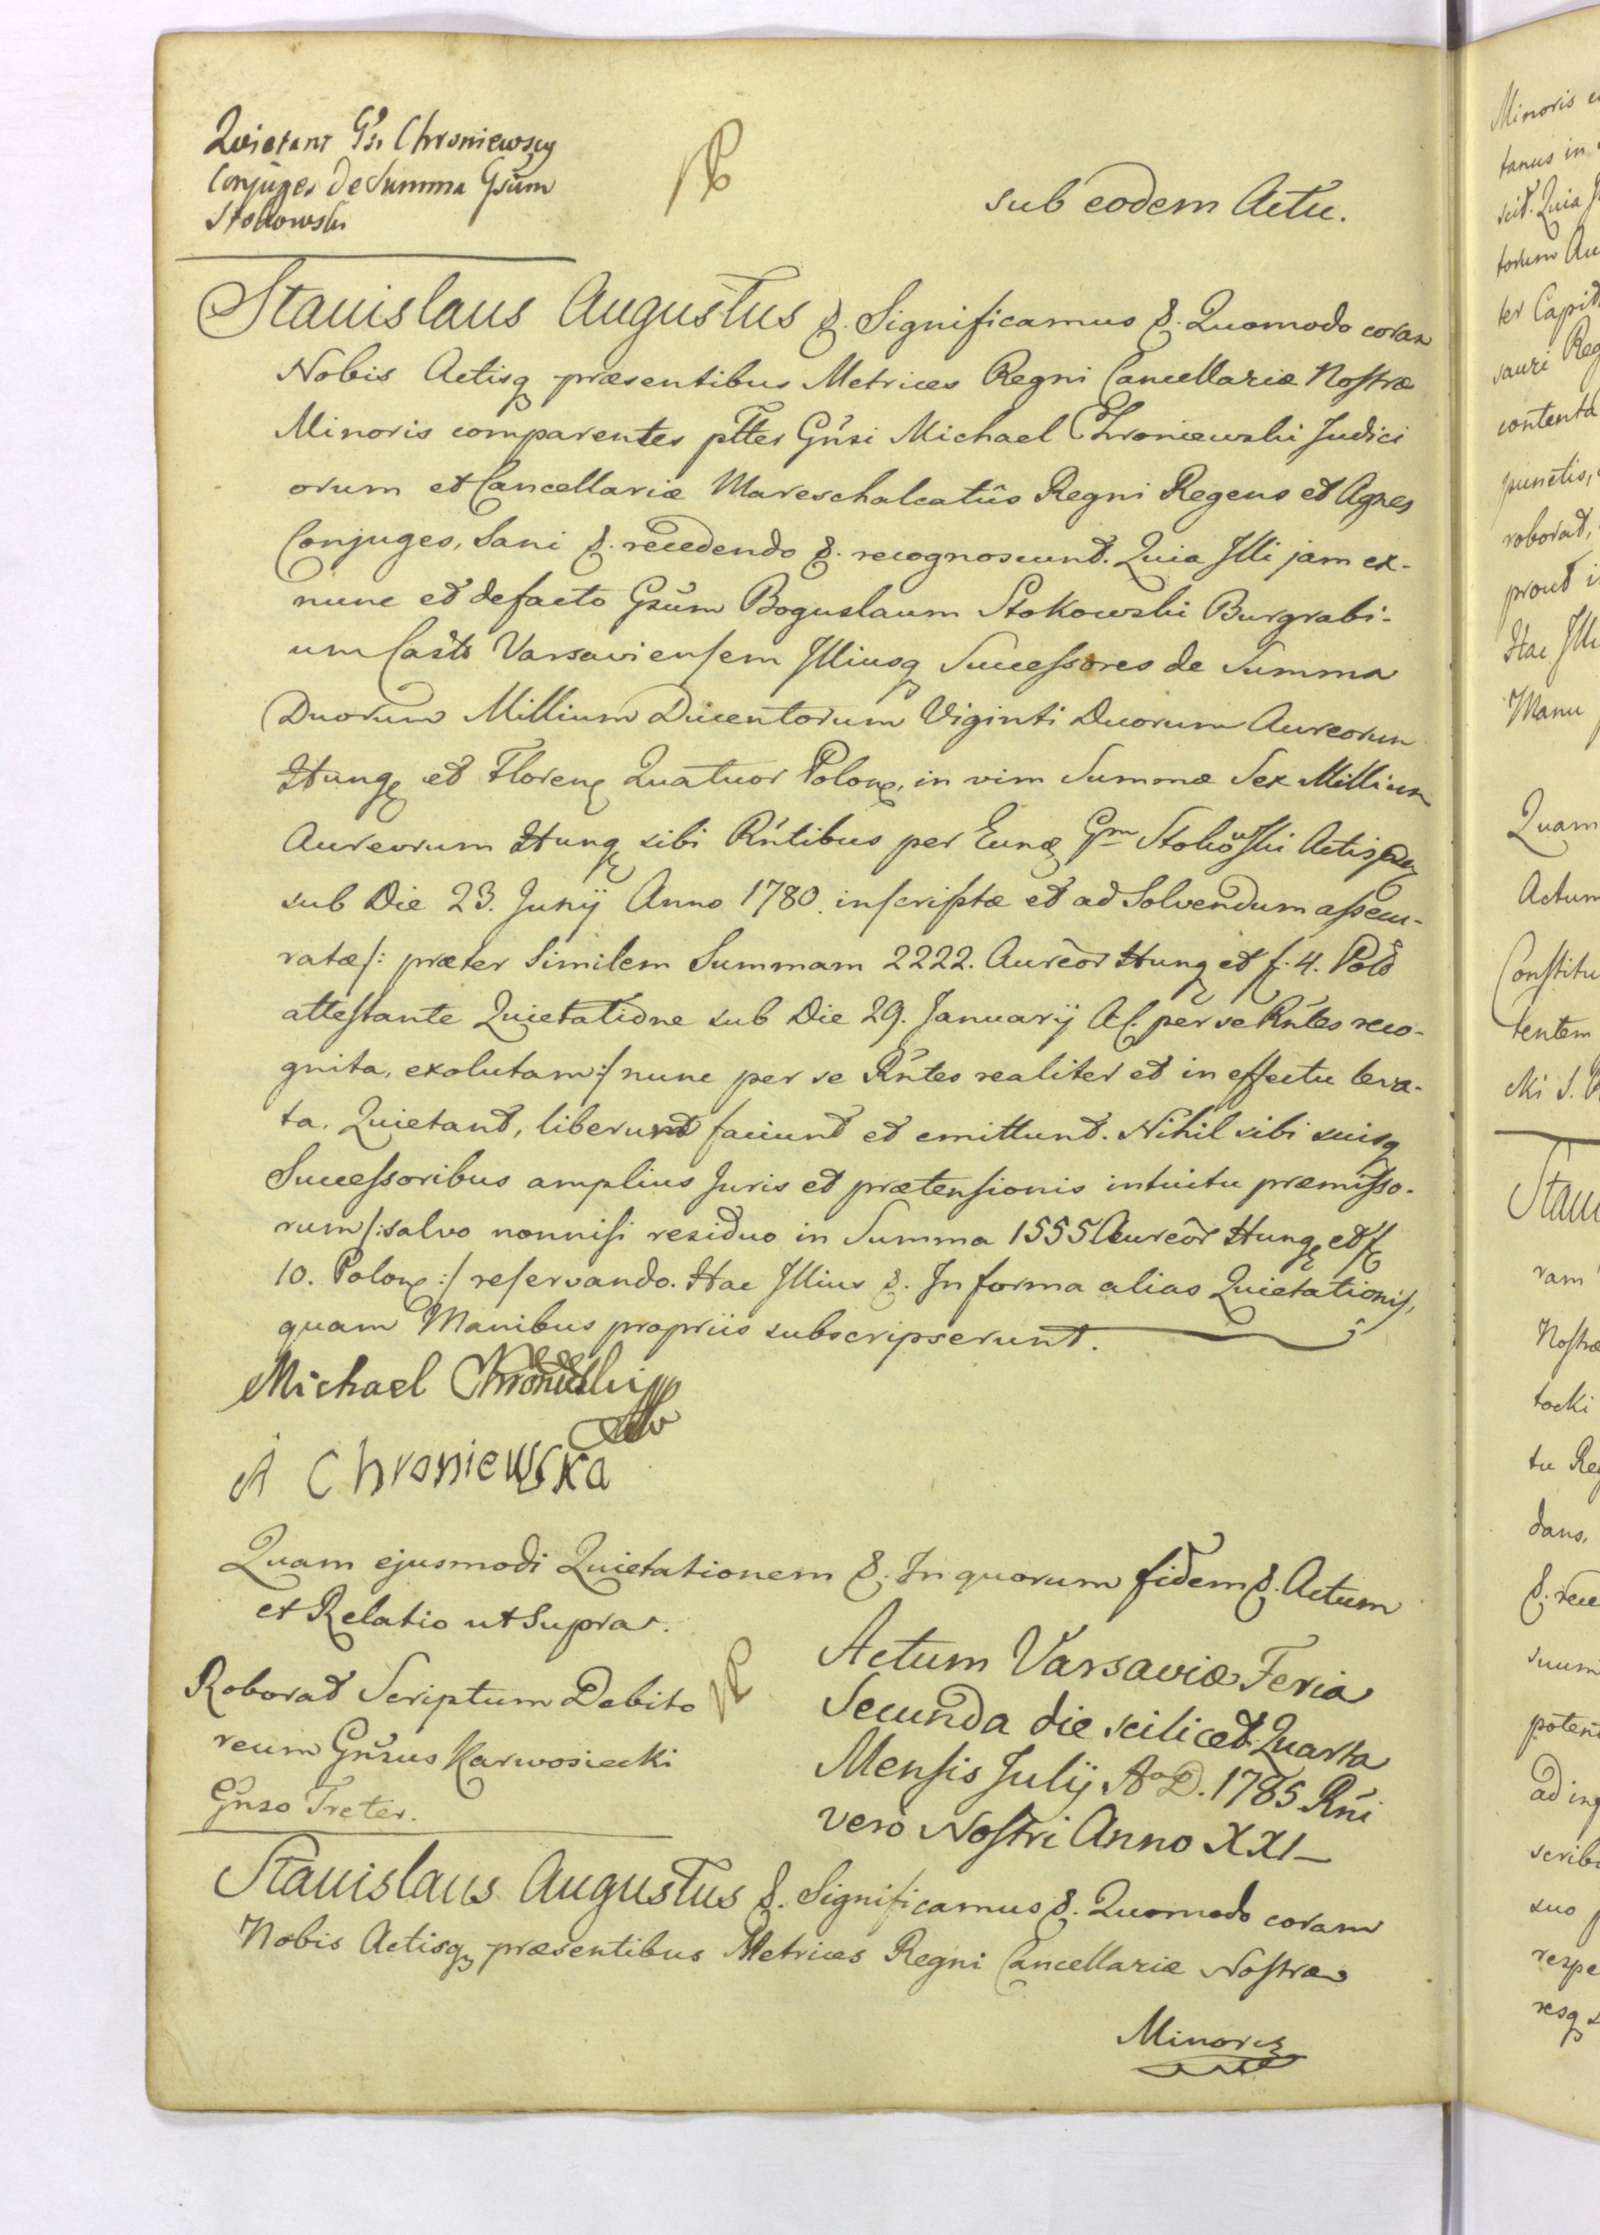 Quietant Gsi Chroniewscy
Conjuges de Summa Gsum
Stokowski
sub eodem Actu.
Stanislaus Augustus &. Significamus &. Quomodo coram
Nobis Actisq præsentibus Metrices Regni Cancellariæ Nostræ
Minoris comparentes pltes Gnsi Michael Chroniewski Judici
orum et Cancellariæ Mareschalcatûs Regni Regens et Agnes
Conjuges, Sani &. recedendo &. recognoscunt. Quia Illi jam ex-
nunc et defacto Gsum Boguslaum Stokowski Burgrabi-
um Casts Varsaviensem Illiusq Successores de Summa
Duorum Millium Ducentorum Viginti Duorum Aureorum
Hung et Floren Quatuor Polon, in vim Summæ Sex Millium
Aureorum Hung sibi Rntibus per Eund Gm Stokowski Actis
sub Die 23. Junij Anno 1780. inscriptæ et ad Solvendum assecu-
ratæ/: præter Similem Summam 2222. Aureor Hung et f. 4. Polo
attestante Quietatione sub Die 29. Januarij A C. per se Rntes reco-
gnita, exolutam:/ nunc per se Rntes realiter et in effectu leva-
ta. Quietant, liberumt faciunt et emittunt. Nihil sibi suisq
Successoribus amplius Juris et prætensionis intuitu præmisso-
rum /:salvo nonnisi residuo in Summa 1555 Aureor Hung et f
10. Polon :/ reservando. Hac Illius &. In forma alias Quietationis,
quam Manibus propriis subscripserunt.
Michael Chroniewski
A Chroniewska
Quam ejusmodi Quietationem &. In quorum fidem &. Actum
et Relatio ut Supra.
Roborat Scriptum Debito
reum Gnsus Karwosiecki
Gnso Treter.
Actum Varsaviæ Feria
Secunda die scilicet Quarta
Mensis Julij Ao D. 1785 Rni
vero Nostri Anno XXI
Stanislaus Augustus &. Significamus &. Quomodo coram
Nobis Actisq præsentibus Metrices Regni Cancellariæ Nostræ
Minoris
Minoris
tanus in
scit. Quia
torum Au
ter Capit
sauri Reg
contenta
punctis,
roborat,
prout i
Hac Illi
Manu
Quam
Actum
Constitu
tentem
cki S.
Stani
ram
Nostræ
tocki
tu Reg
dans,
&. rece
suum
poten
ad inq
scrib
suo
respe
resq